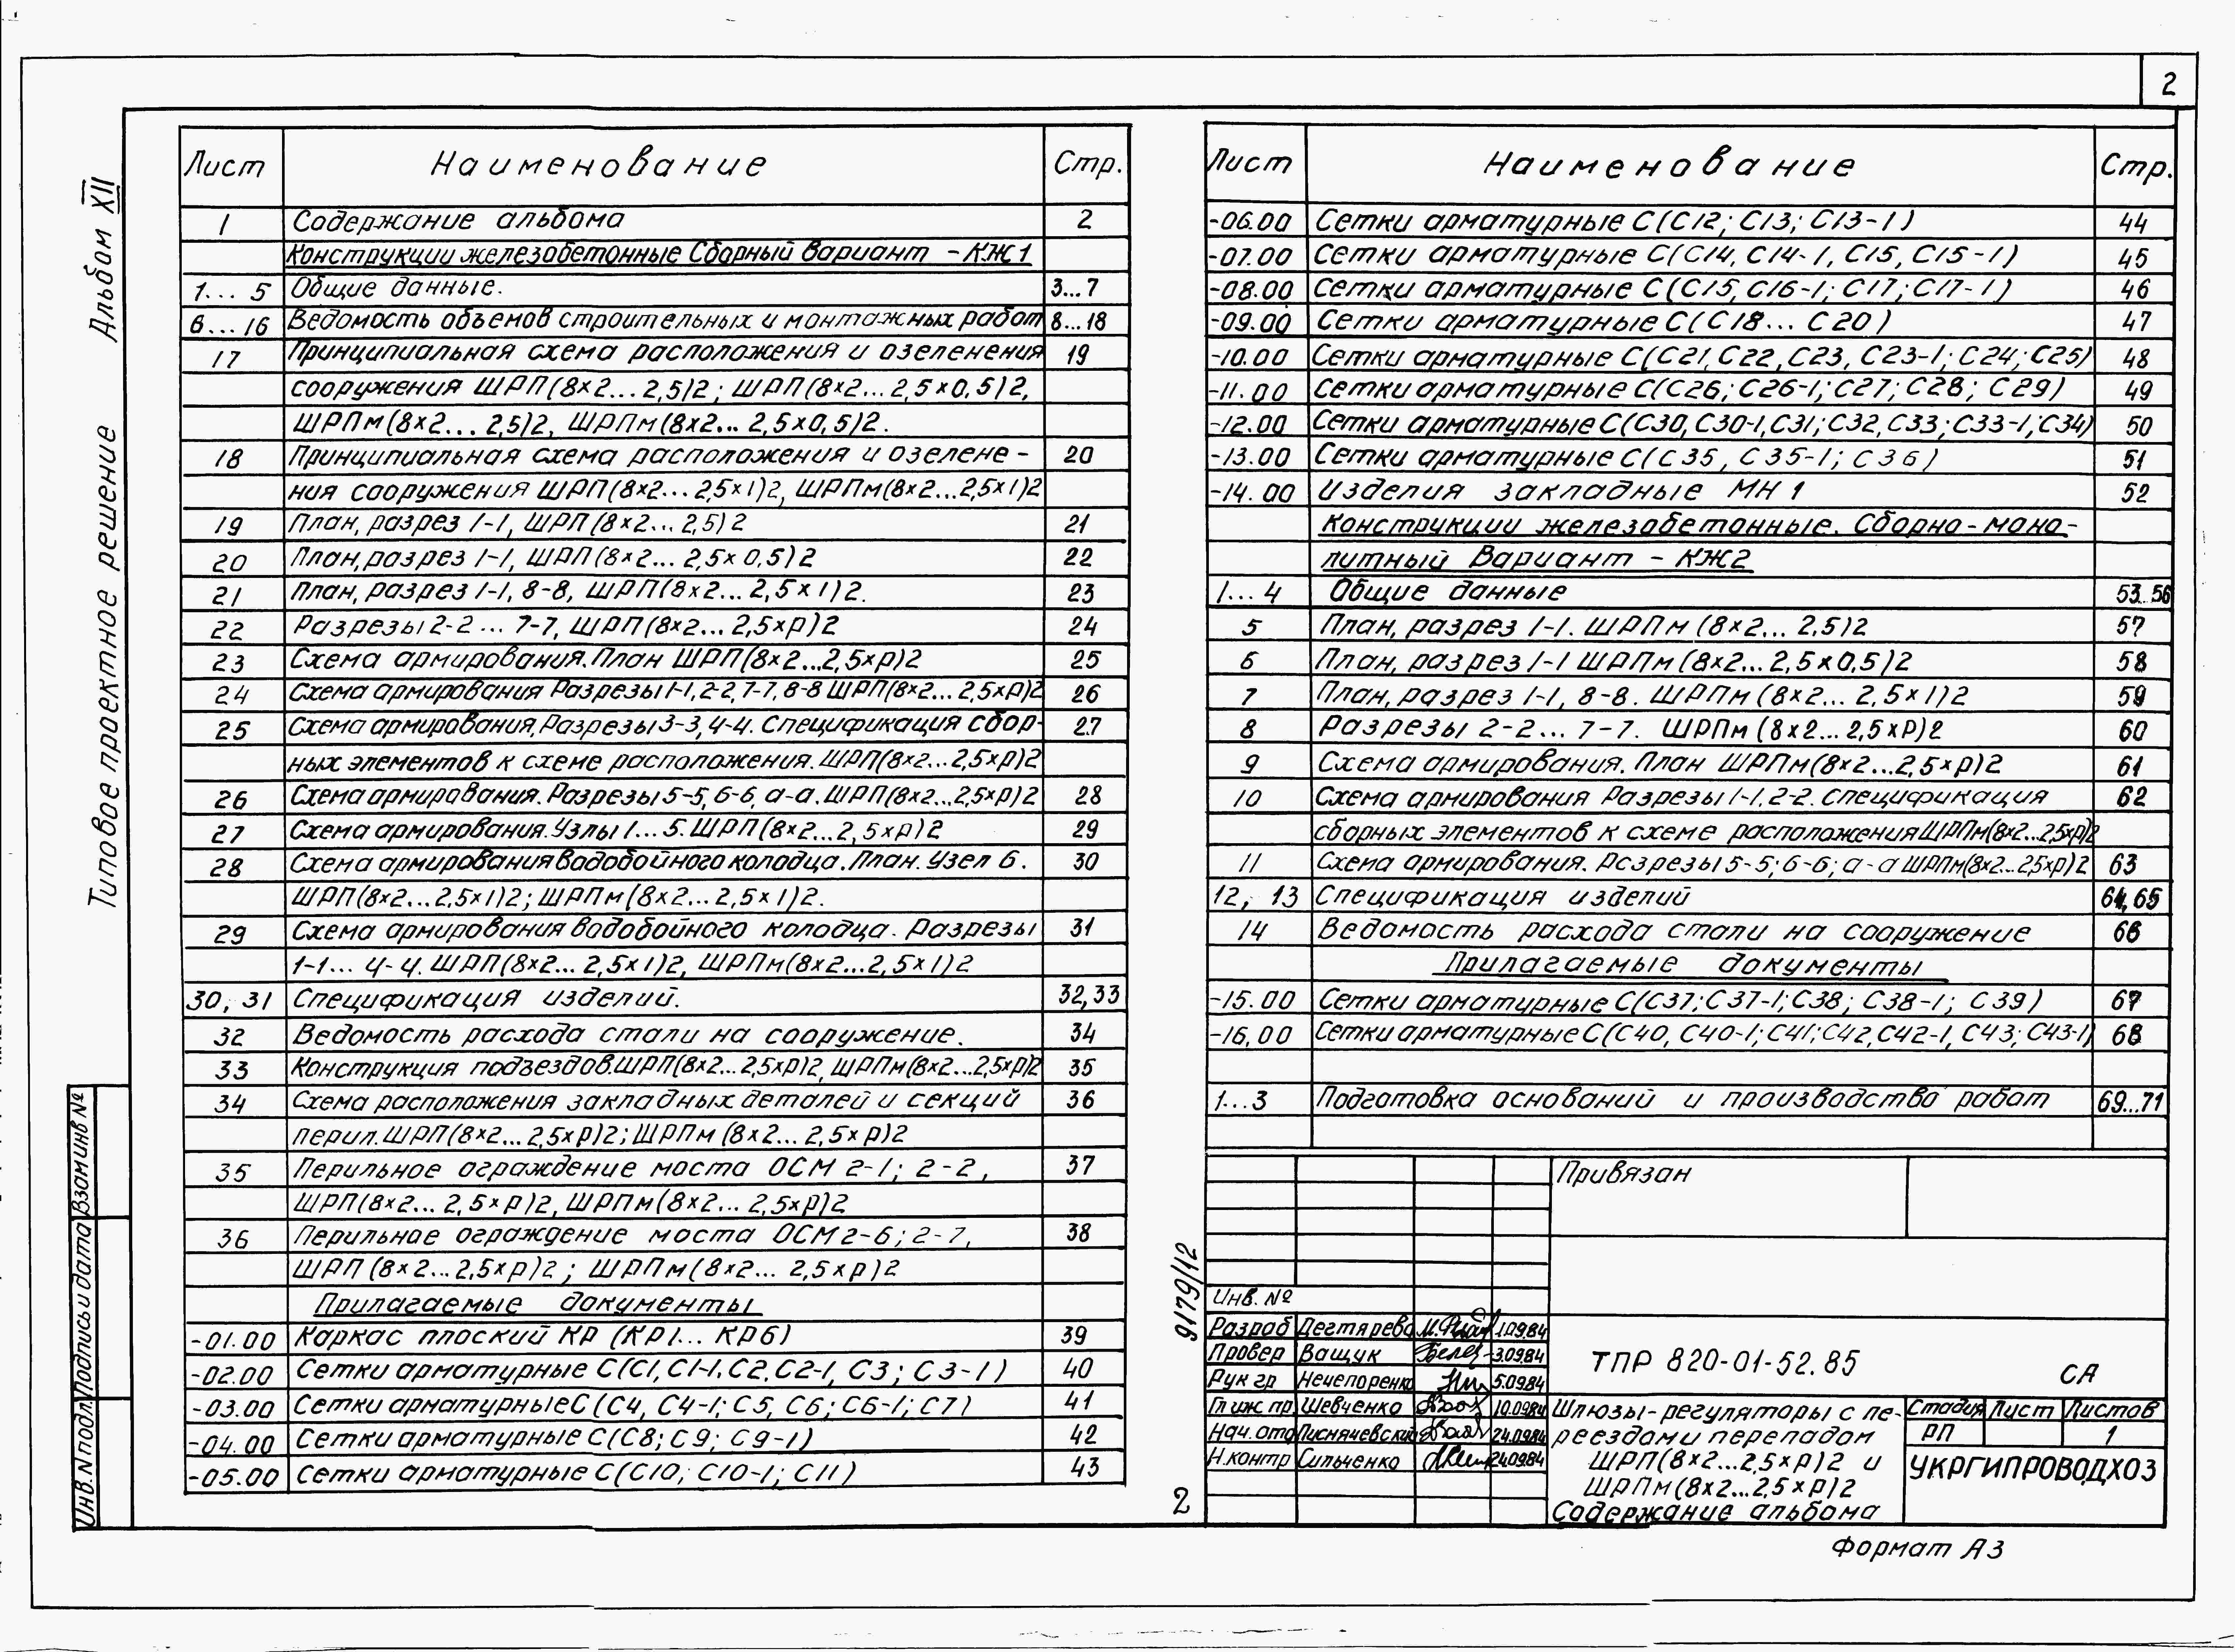 2
Типовое проектное решение Альбом XII
Лист Наименование Стр.
1 Содержание альбома 2
Конструкции железобетонные Сборный Вариант - КЖ1
1... 5 Общие данные. 3...7
6...16 Ведомость объемов строительных и монтажных работ 8...18
17 Принципиальная схема расположения и озеленения 19
сооружения ШРП(8×2... 2,5)2; ШРП(8×2... 2,5×0,5)2,
ШРПм(8×2... 2,5)2, ШРПм(8×2... 2,5×0,5)2.
18 Принципиальная схема расположения и озелене- 20
ния сооружения ШРП(8×2... 2,5×1)2, ШРПм(8×2...2,5×1)2
19 План, разрез 1-1, ШРП(8×2... 2,5)2 21
20 План, разрез 1-1, ШРП(8×2... 2,5×0,5)2 22
21 План, разрез 1-1, 8-8, ШРП(8×2... 2,5×1)2. 23
22 Разрезы 2-2... 7-7, ШРП(8×2... 2,5×р)2 24
23 Схема армирования. План ШРП(8×2...2,5×р)2 25
24 Схема армирования Разрезы 1-1, 2-2, 7-7, 8-8 ШРП(8×2... 2,5×р)2 26
25 Схема армирования, Разрезы 3-3, 4-4. Спецификация сбор- 27
ных элементов к схеме расположения. ШРП(8×2... 2,5×р)2
26 Схема армирования. Разрезы 5-5, 6-6, а-а. ШРП(8×2...2,5×р)2 28
27 Схема армирования. Узлы 1... 5. ШРП(8×2... 2,5×р)2 29
28 Схема армирования водобойного колодца. План. Узел 6. 30
ШРП(8×2... 2,5×1)2; ШРПм(8×2... 2,5×1)2.
29 Схема армирования водобойного колодца. Разрезы 31
1-1... 4-4. ШРП(8×2... 2,5×1)2, ШРПм(8×2...2,5×1)2
30, 31 Спецификация изделий. 32,33
32 Ведомость расхода стали на сооружение. 34
33 Конструкция подъездов.ШРП(8×2... 2,5×р)2, ШРПм(8×2...2,5×р)2 35
34 Схема расположения закладных деталей и секций 36
перил. ШРП(8×2... 2,5×р)2; ШРПм(8×2... 2,5×р)2
35 Перильное ограждение моста ОСМ 2-1; 2-2, 37
ШРП(8×2... 2,5×р)2, ШРПм(8×2... 2,5×р)2
36 Перильное ограждение моста ОСМ 2-6; 2-7, 38
ШРП(8×2... 2,5×р)2; ШРПм(8×2... 2,5×р)2
Прилагаемые документы
-01.00 Каркас плоский КР (КР1... КР6) 39
-02.00 Сетки арматурные С(С1, С1-1, С2, С2-1, С3; С3-1) 40
-03.00 Сетки арматурные С(С4, С4-1; С5, С6; С6-1; С7) 41
-04.00 Сетки арматурные С(С8; С9; С9-1) 42
-05.00 Сетки арматурные С(С10; С10-1; С11) 43
Лист Наименование Стр.
-06.00 Сетки арматурные С(С12; С13; С13-1) 44
-07.00 Сетки арматурные С(С14, С14-1, С15, С15-1) 45
-08.00 Сетки арматурные С(С15, С16-1; С17; С17-1) 46
-09.00 Сетки арматурные С(С18... С20) 47
-10.00 Сетки арматурные С(С21, С22, С23, С23-1; С24; С25) 48
-11.00 Сетки арматурные С(С26; С26-1; С27; С28; С29) 49
-12.00 Сетки арматурные С(С30, С30-1, С31; С32, С33; С33-1, С34) 50
-13.00 Сетки арматурные С(С35, С35-1; С36) 51
-14.00 Изделия закладные МН1 52
Конструкции железобетонные. Сборно-моно-
литный Вариант - КЖ2
1... 4 Общие данные 53...56
5 План, разрез 1-1. ШРПм(8×2... 2,5)2 57
6 План, разрез 1-1 ШРПм(8×2... 2,5×0,5)2 58
7 План, разрез 1-1, 8-8. ШРПм(8×2... 2,5×1)2 59
8 Разрезы 2-2... 7-7. ШРПм(8×2... 2,5×р)2 60
9 Схема армирования. План ШРПм(8×2...2,5×р)2 61
10 Схема армирования Разрезы 1-1, 2-2. Спецификация 62
сборных элементов к схеме расположения ШРПм(8×2...2,5×р)2
11 Схема армирования. Разрезы 5-5; 6-6; а-а ШРПм(8×2...2,5×р)2 63
12; 13 Спецификация изделий 64,65
14 Ведомость расхода стали на сооружение 66
Прилагаемые документы
-15.00 Сетки арматурные С(С37; С37-1; С38; С38-1; С39) 67
-16,00 Сетки арматурные С(С40, С40-1; С41; С42, С42-1, С43; С43-1) 68
1...3 Подготовка оснований и производство работ 69...71
Привязан
Инв. №
Разраб Дегтярева 1.09.84
Провер Ващук 3.09.84
Рук гр Нечепоренко 5.09.84
Гл иж. пр. Шевченко 10.09.84
Нач. отд Лисничевский 24.09.84
Н.контр Сильченко 24.09.84
ТПР 820-01-52.85 СА
Шлюзы-регуляторы с пе-
реездом и перепадом
ШРП(8×2...2,5×р)2 и
ШРПм(8×2...2,5×р)2
Содержание альбома
Стадия Лист Листов
РП 1
УКРГИПРОВОДХОЗ
Формат А3
9179/12
2
Инв. N подл. Подпись и дата Взам инв №